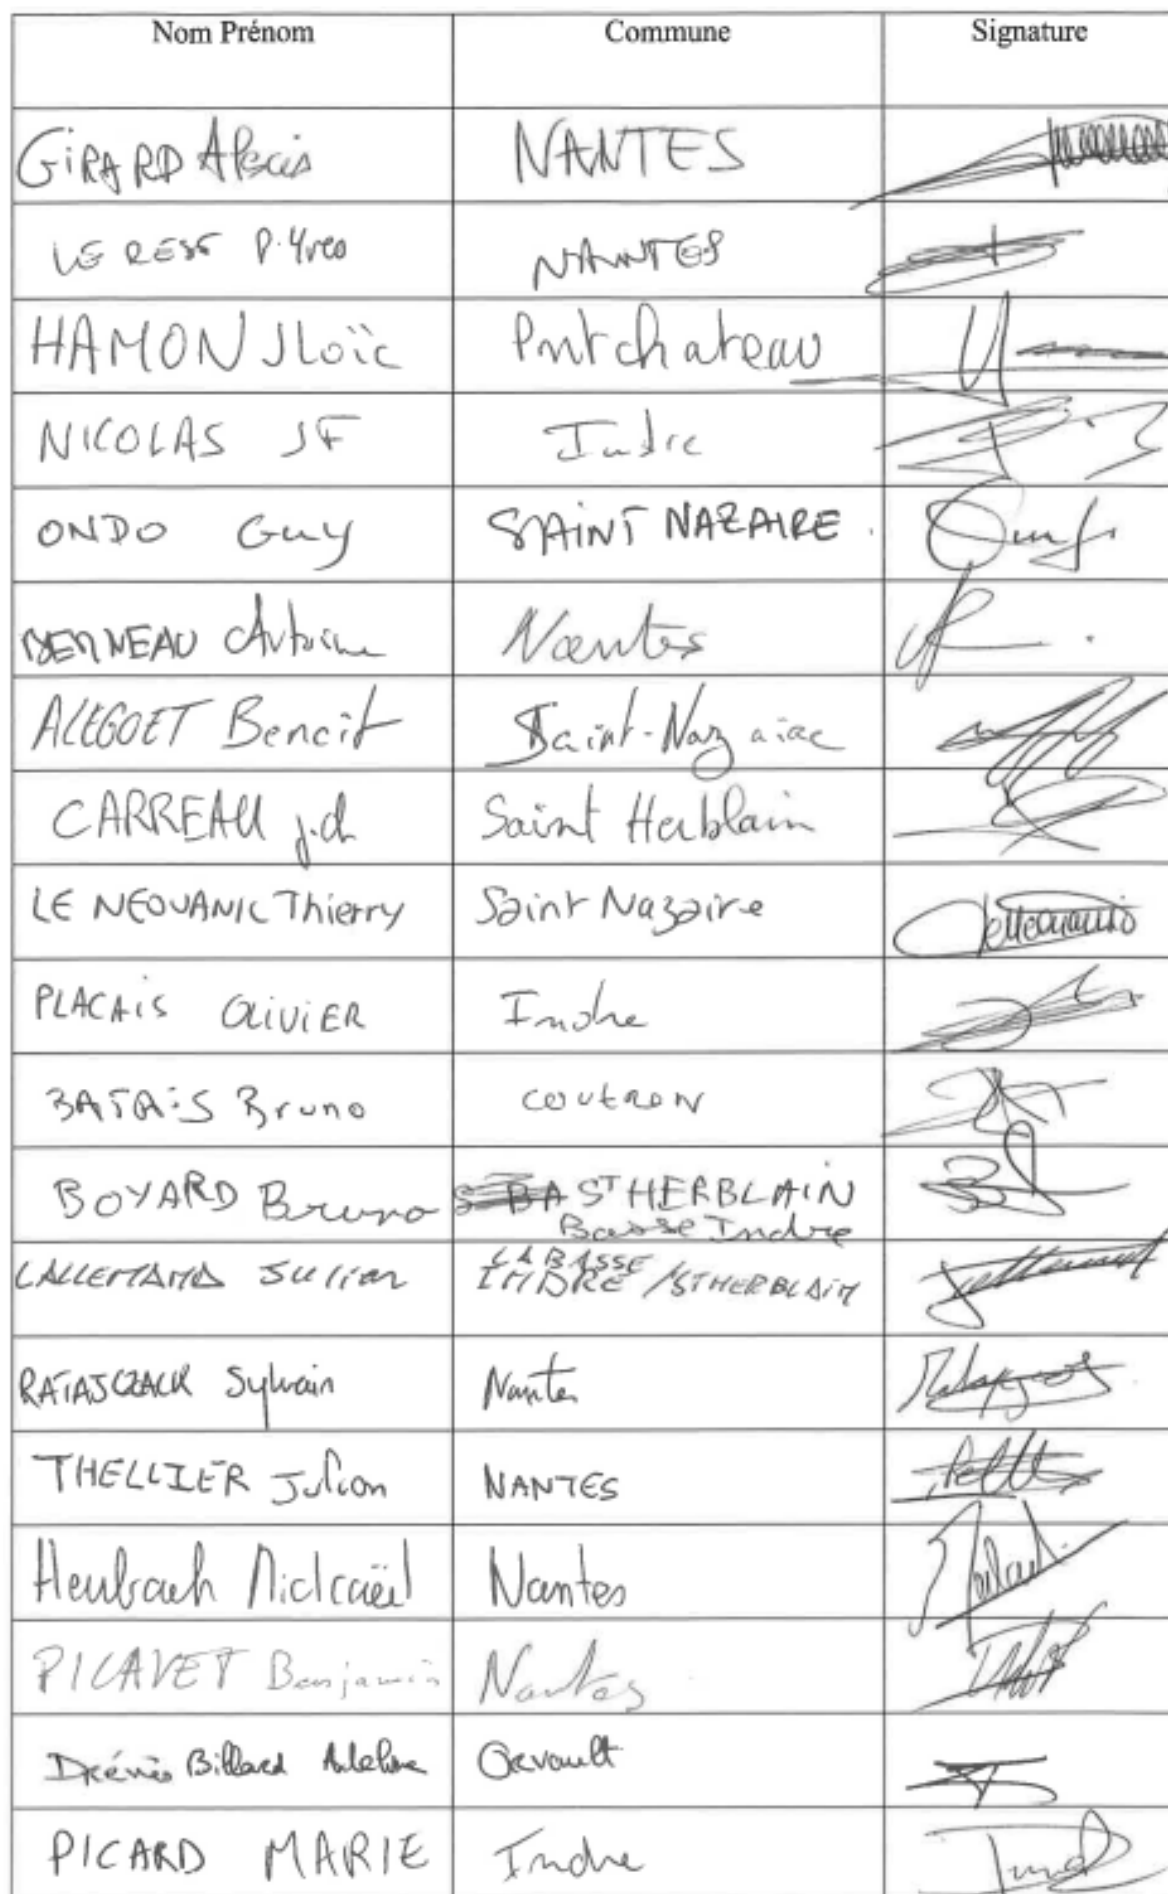 Nom Prénom Commune Signature
GIRARD Alexis NANTES
LE RESTE P.Yves NANTES
HAMON JLoïc Pontchateau
NICOLAS JF Indre
ONDO Guy SAINT NAZAIRE.
BERNEAU Antoine Nantes
ALEGOET Benoit Saint-Nazaire
CARREAU j.ch Saint Herblain
LE NEOUANIC Thierry Saint Nazaire
PLACAIS OLIVIER Indre
BATAIS Bruno COUERON
BOYARD Bruno ST HERBLAIN
Basse Indre
LA BASSE
LALLEMAND Julien INDRE / ST HERBLAIN
RATAJCZACK Sylvain Nantes
THELLIER Julien NANTES
Heubach Mickaël Nantes
PICAVET Benjamin Nantes
Billard Adeline Orvault
PICARD MARIE Indre